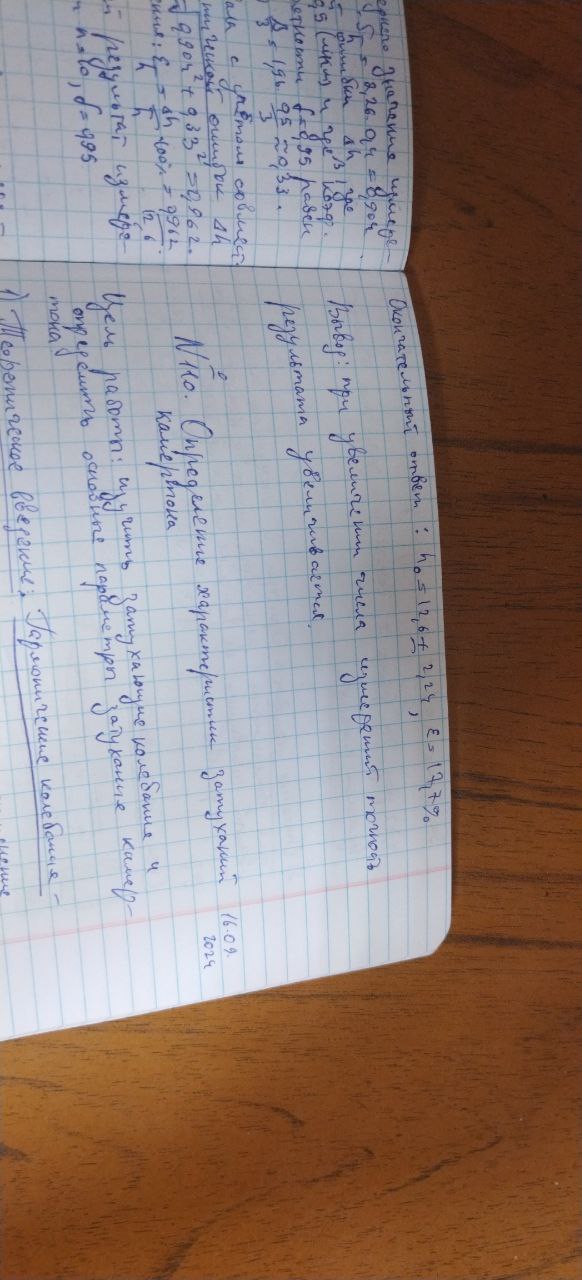 значение измере-
= 2,26 · 0,4 = 0,904
ошибки Δh, где
0,95 (мкм) и где коэф.
f = 0,95 равен
Δ/3 = 1,96 · 0,5/3 ≈ 0,33.
с учётом совмест-
ошибок Δh
√0,904² + 0,33² = 0,962.
ε = Δh/h · 100% = 0,962/12,6
результат измере-
n = 10, f = 0,95
Окончательный ответ: h₀ = 12,6 ± 2,24, ε = 17,7%
Вывод: при увеличении числа измерений точность
результата увеличивается.
16.09.
2024
N110. Определение характеристик затуханий
камертона
Цель работы: изучить затухающие колебания и
определить основные параметры затухания камер-
тона
1) Теоретическое введение: Гармонические колебания -